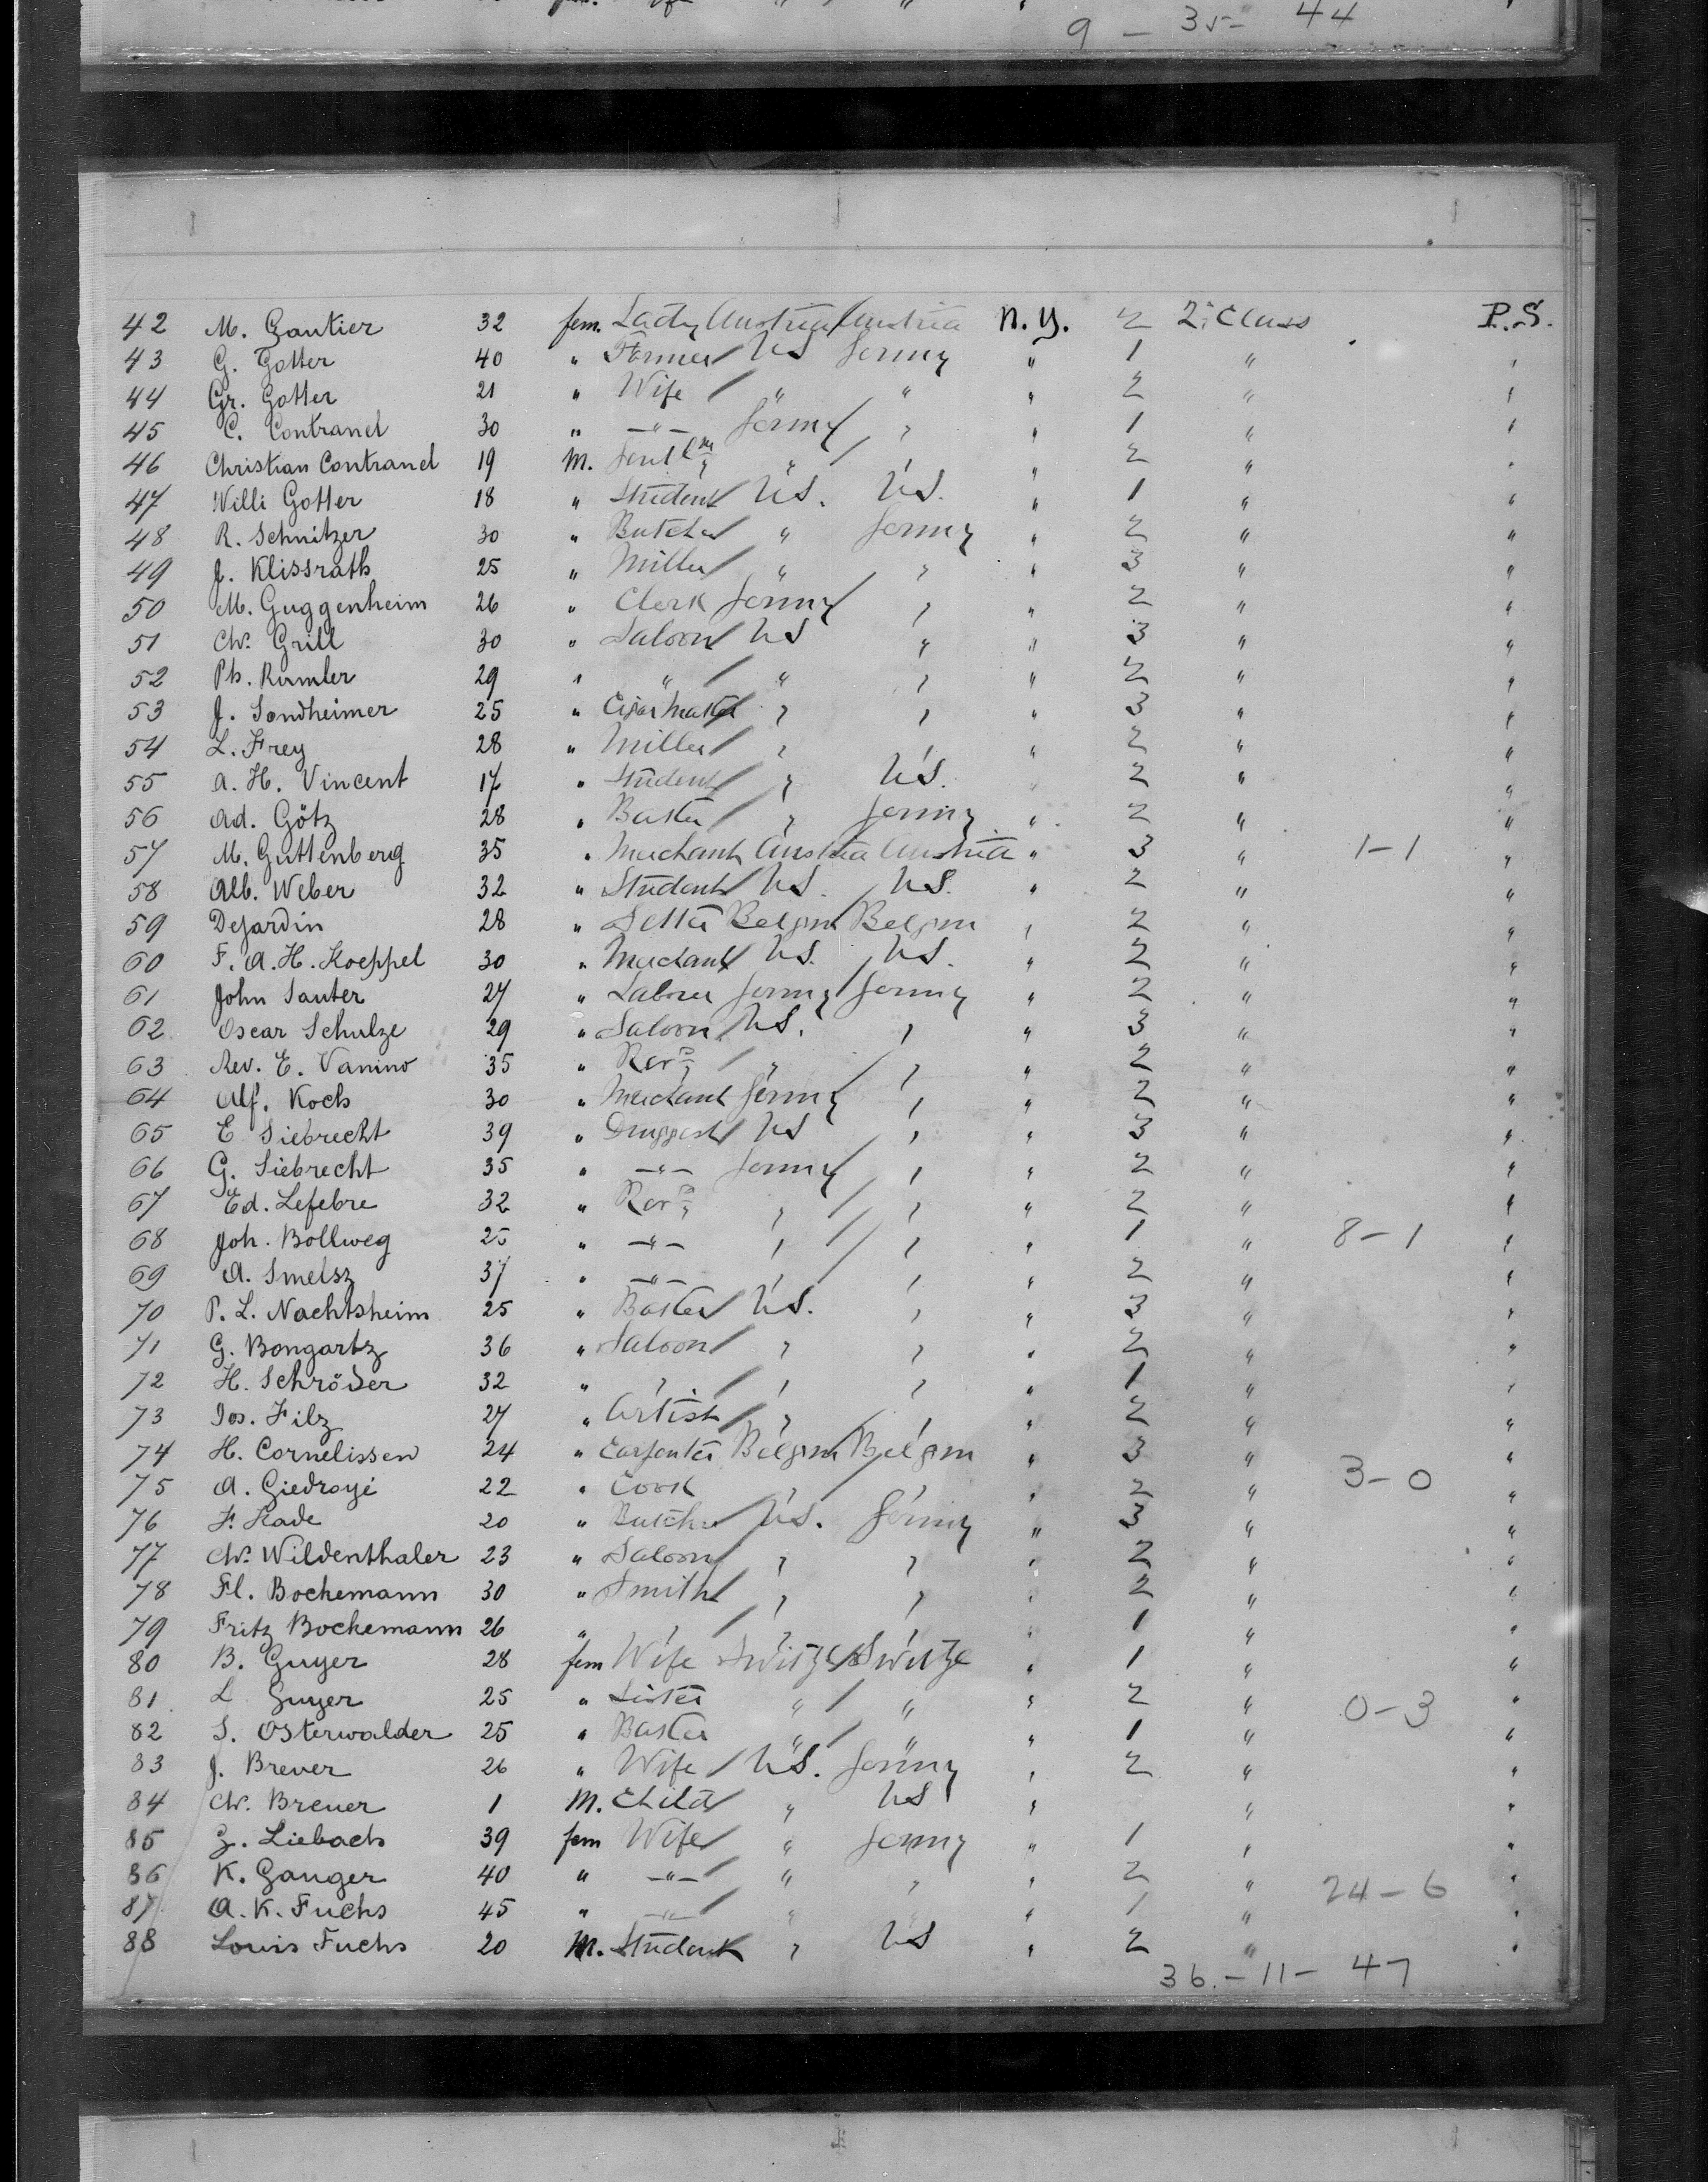 9 - 35 - 44
42 M. Gautier 32 fem. Lady Austria / Austria N. Y. 2 2: Class P.S.
43 G. Gotter 40 " Farmer / US Germy " 1 " "
44 Gr. Gotter 21 " Wife / " " " 2 " "
45 C. Contrand 30 " —"— Germy / " " 1 " "
46 Christian Contrand 19 M. Gentlm " / " " 2 " "
47 Willi Gotter 18 " Student / US. US. " 1 " "
48 R. Schnitzer 30 " Butcher / " Germy " 2 " "
49 J. Klissrath 25 " Miller / " " " 3 " "
50 M. Guggenheim 26 " Clerk Germy / " " 2 " "
51 W. Grill 30 " Saloon / US " " 3 " "
52 Ph. Rumler 29 " " / " " " 2 " "
53 J. Sondheimer 25 " Cigar maker / " " " 3 " "
54 L. Frey 28 " Miller / " " 2 " "
55 A. H. Vincent 17 " Student / " US. " 2 " "
56 Ad. Götz 28 " / " Germy " 2 " "
57 M. Guttenberg 35 " Merchant Austria / Austria " 3 " 1-1 "
58 Alb. Weber 32 " Student / US. US. " 2 " "
59 Dejardin 28 " Belgm / Belgm " 2 " "
60 F. A. H. Koeppel 30 " Merchant / US. US. " 2 " "
61 John Sauter 27 " Laborer Germy / Germy " 2 " "
62 Oscar Schulze 29 " Saloon / US. " " 3 " "
63 Rev. E. Vanino 35 " Revd / " " " 2 " "
64 Alf. Koch 30 " Merchant Germy / " " 2 " "
65 E. Siebrecht 39 " Druggist / US " " 3 " "
66 G. Siebrecht 35 " —"— Germy / " " 2 " "
67 Ed. Lefebre 32 " Revd " / " " 2 " "
68 Joh. Bollweg 25 " —"— " / " " 1 " 8-1 "
69 A. Smetsz 37 " —"— " / " " 2 " "
70 P. L. Nachtsheim 25 " / US. " " 3 " "
71 G. Bongartz 36 " Saloon / " " " 2 " "
72 H. Schröder 32 " " / " " " 1 " "
73 Jos. Filz 27 " Artist / " " " 2 " "
74 H. Cornelissen 24 " Carpenter Belgm / Belgm " 3 " "
75 A. Giedroyć 22 " Cook " / " " 2 " 3-0 "
76 F. Kade 20 " Butcher / US. Germy " 3 " "
77 W. Wildenthaler 23 " Saloon / " " " 2 " "
78 Fl. Bockemann 30 " Smith / " " " 2 " "
79 Fritz Bockemann 26 " " / " " " 1 " "
80 B. Guyer 28 fem Wife Switze / Switze " 1 " "
81 L. Guyer 25 " Sister " / " " 2 " 0-3 "
82 S. Osterwalder 25 " " / " " 1 " "
83 J. Brever 26 " Wife / US. Germy " 2 " "
84 W. Brever 1 M. Child / " US " " "
85 Z. Liebach 39 fem Wife / " Germy " 1 " "
86 K. Ganger 40 " —"— / " " " 2 " 24-6 "
87 A. K. Fuchs 45 " —"— / " " " 1 " "
88 Louis Fuchs 20 M. Student " US " 2 " "
36.-11- 47